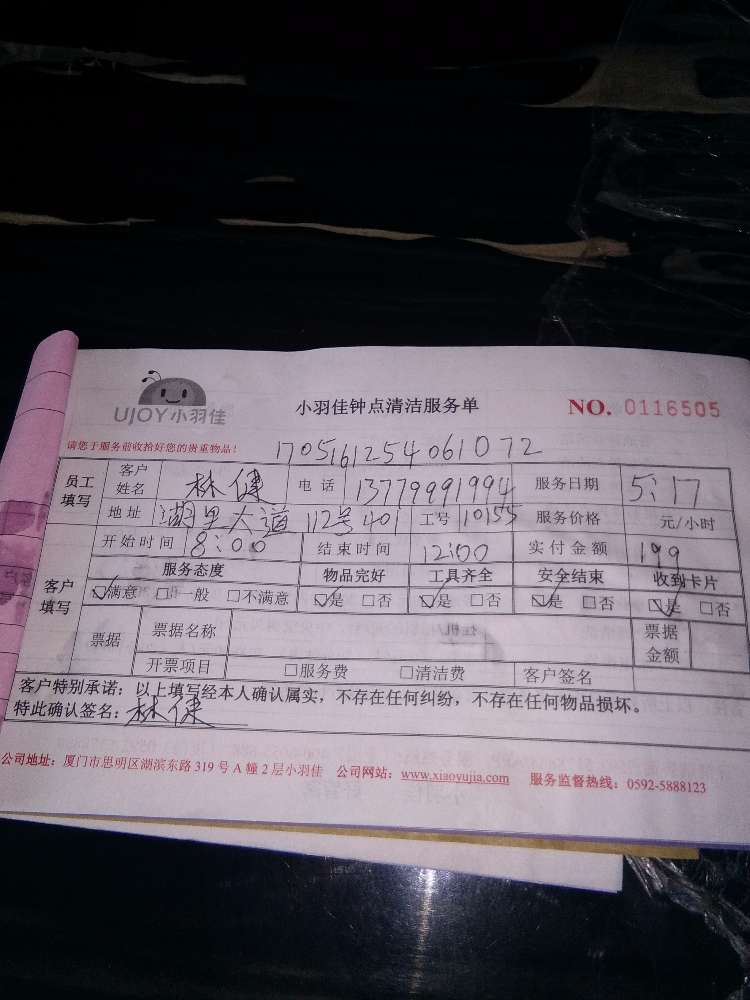 UJOY小羽佳
小羽佳钟点清洁服务单
NO. 0116505
请您于服务前收拾好您的贵重物品！
1705161254061072
员工填写 客户姓名 林健 电话 13779991994 服务日期 5:17
地址 湖里大道112号401 工号 10155 服务价格 元/小时
开始时间 8:00 结束时间 12:00 实付金额 199
客户填写 服务态度 物品完好 工具齐全 安全结束 收到卡片
☑满意 □一般 □不满意 ☑是 □否 ☑是 □否 ☑是 □否 ☑是 □否
票据 票据名称 票据金额
开票项目 □服务费 □清洁费 客户签名
客户特别承诺：以上填写经本人确认属实，不存在任何纠纷，不存在任何物品损坏。
特此确认签名：林健
公司地址：厦门市思明区湖滨东路319号A幢2层小羽佳 公司网站：www.xiaoyujia.com 服务监督热线：0592-5888123